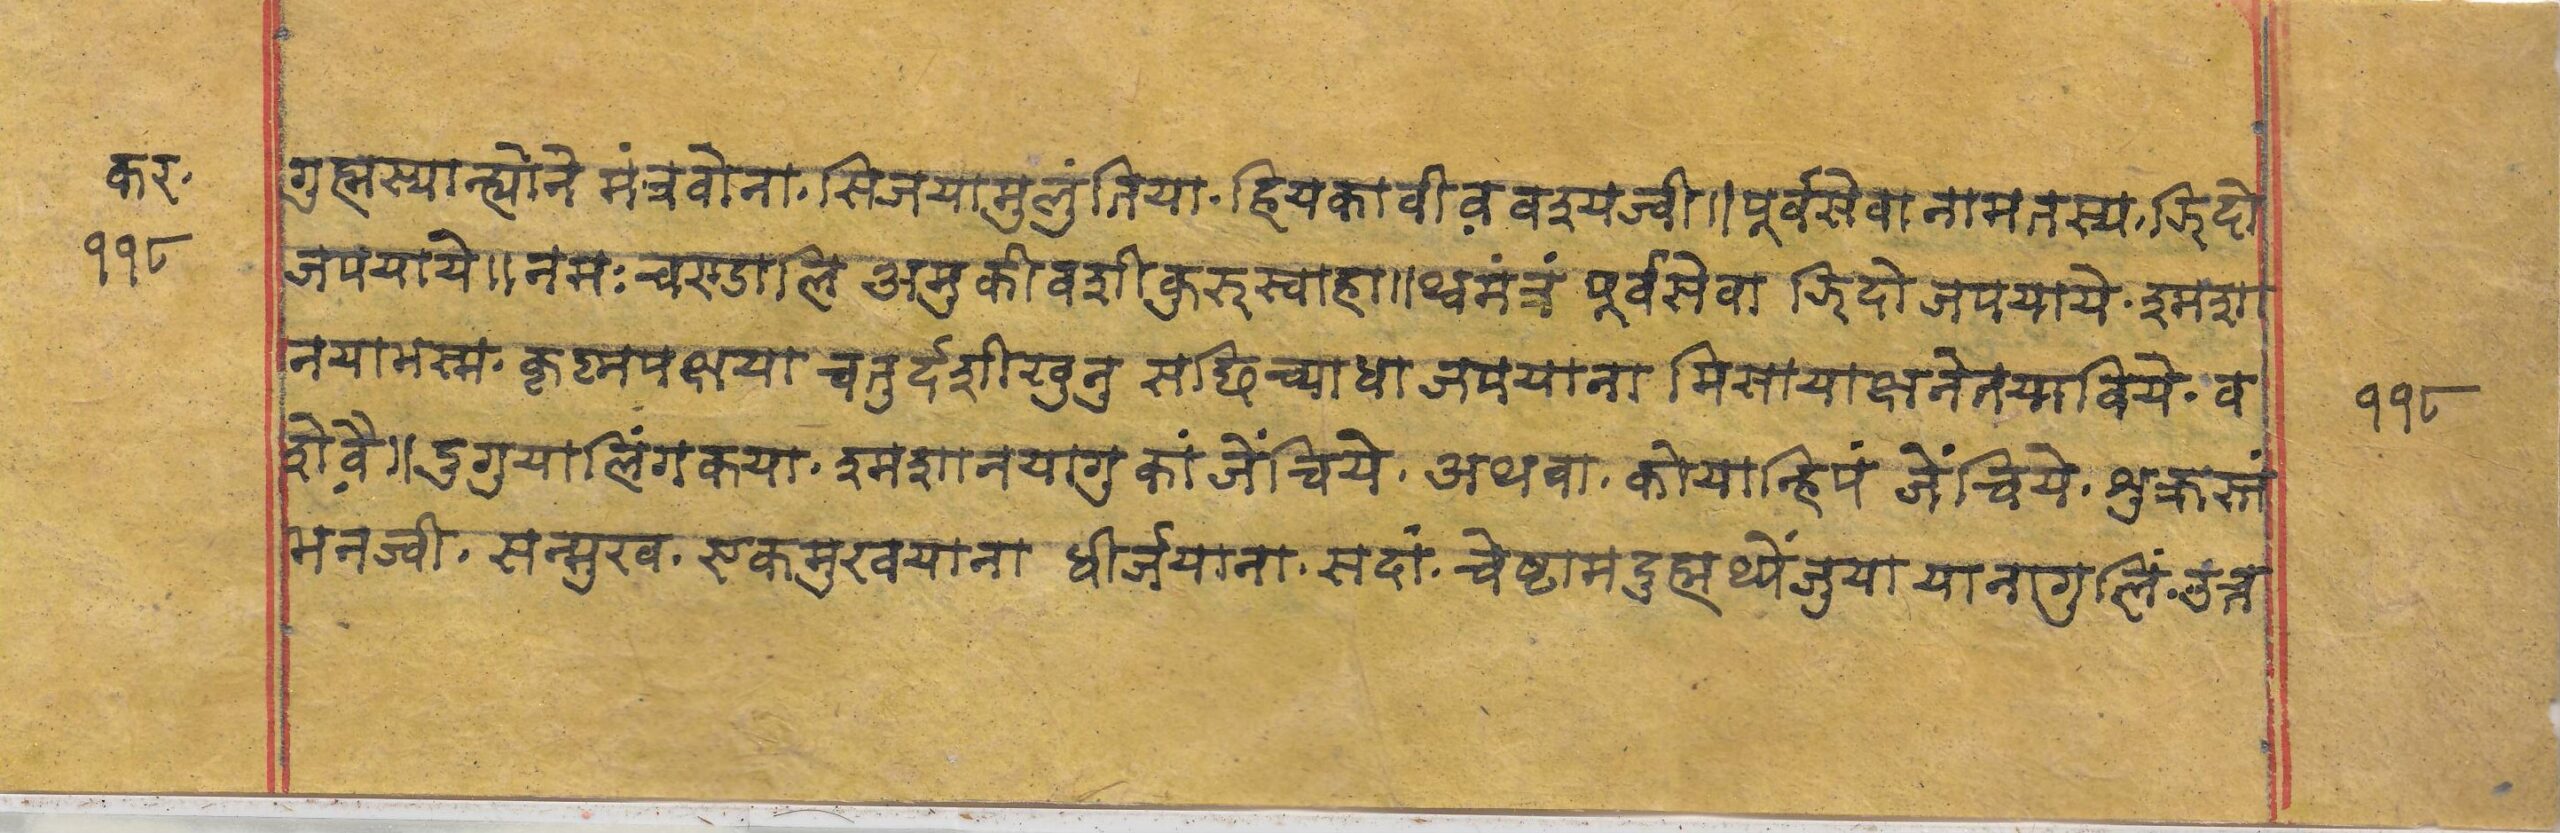 कर.
११८
गुह्मस्यान्ह्योने मंत्रवोना. सिजयामुलुंतिया. हियकावीव़वश्यज्वी॥ पूर्वसेवानामतस्य. झिदो
जपयाये॥ नमः चण्डालि अमुकीवशीकुरुस्वाहा॥ थ्वमंत्रं पूर्वसेवा झिदो जपयाये. श्मशा
नयाभस्म. कृष्नपक्षया चतुर्दशीखुनु सछिच्याधा जपयाना मिसायाक्षनेतयाविये. व
शेव़ै॥ दुगुयालिंगकया. श्मशानयागुकां जेंचिये. अथवा. कोयान्हिपं जेंचिये. शुक्रस्तं
भनज्वी. सन्मुख. एकमुखयाना धीर्जयाना. सदां. चेष्टामदुह्मथ्येंजुयायानागुलिं. तुत्न
११८